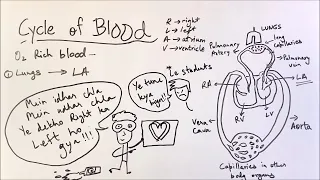 Cycle of Blood
R → right
L → left
A → atrium
V → ventricle
O₂ Rich blood -
① Lungs → LA
Main idhar chla
Main udhar chla
Ye dekho Right ka
Left ho
gya !!!
Ye tune
kya
hyn!!
Le students
LUNGS
lung
Capillaries
Pulmonary
Artery
Pulmonary
vein
RA
LA
RV
LV
Vena
Cava
Aorta
Capillaries in other
body organs